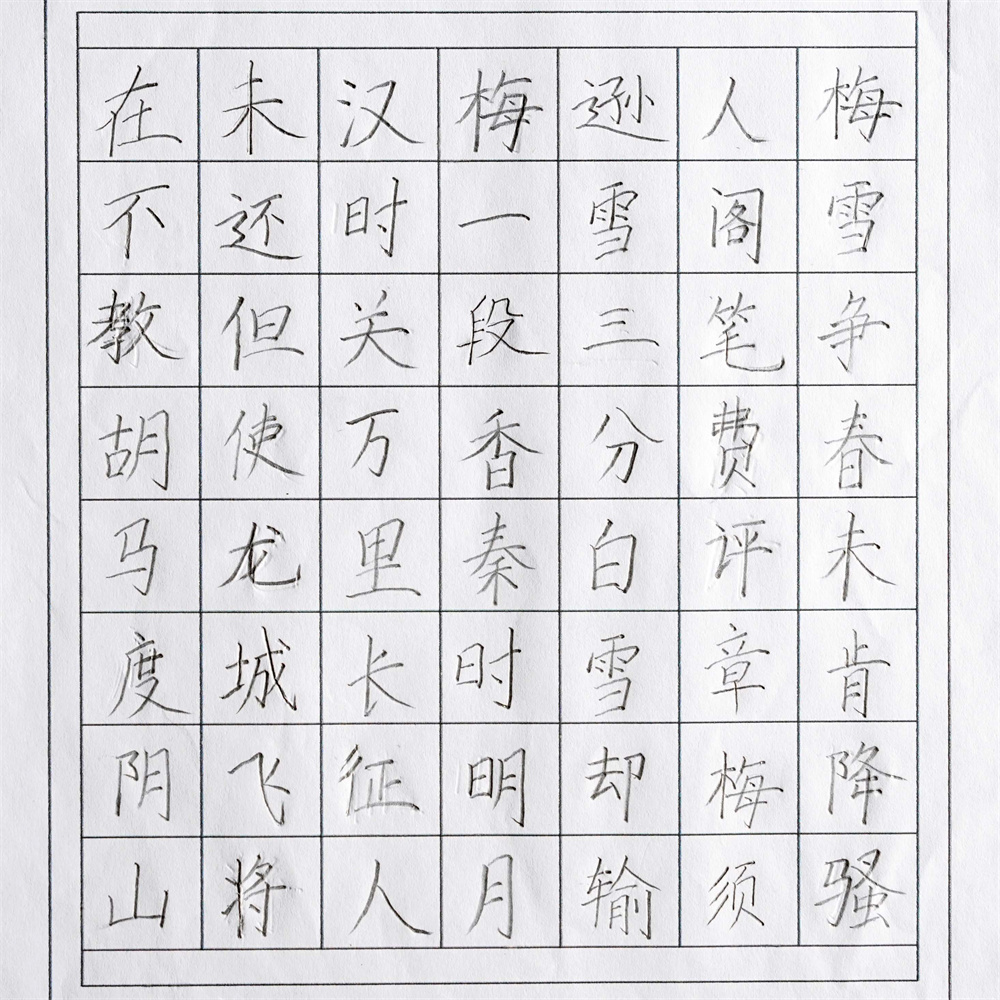 梅雪争春未肯降骚
人阁笔费评章梅须
逊雪三分白雪却输
梅一段香秦时明月
汉时关万里长征人
未还但使龙城飞将
在不教胡马度阴山